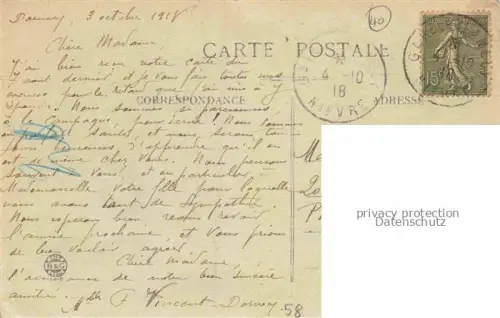 Dornecy, 3 octobre 1918
40
Chère Madame,
CARTE POSTALE
J'ai bien reçu votre carte du
4-10
18
NIEVRE
15
août dernier et je vous fais toutes mes
excuses pour le retard que j'ai mis à y
répondre. Nous sommes si
CORRESPONDANCE
ADRESSE
à la campagne, pour écrire! Nous sommes
en santés, et nous serions
heureuses d'apprendre qu'il en
est de même chez vous. Nous pensons
souvent à vous, et en particulier à
Mademoiselle votre fille pour laquelle
nous avons tant de sympathie.
Nous espérons bien vous revoir
l'année prochaine et vous prions
de bien vouloir agréer
Chère Madame
l'assurance de notre bien sincère
amitié. Mlle F. Vincent - Dornecy
B&G
58
privacy protection
Datenschutz